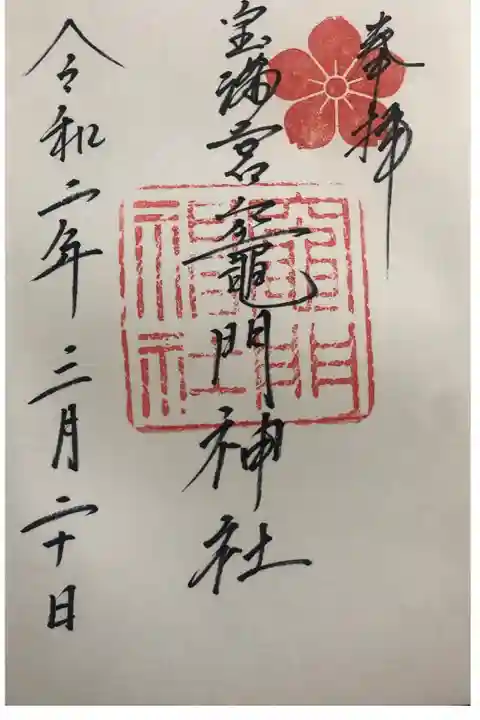 奉拝
宝満宮竈門神社
令和二年三月二十日
竈門神社